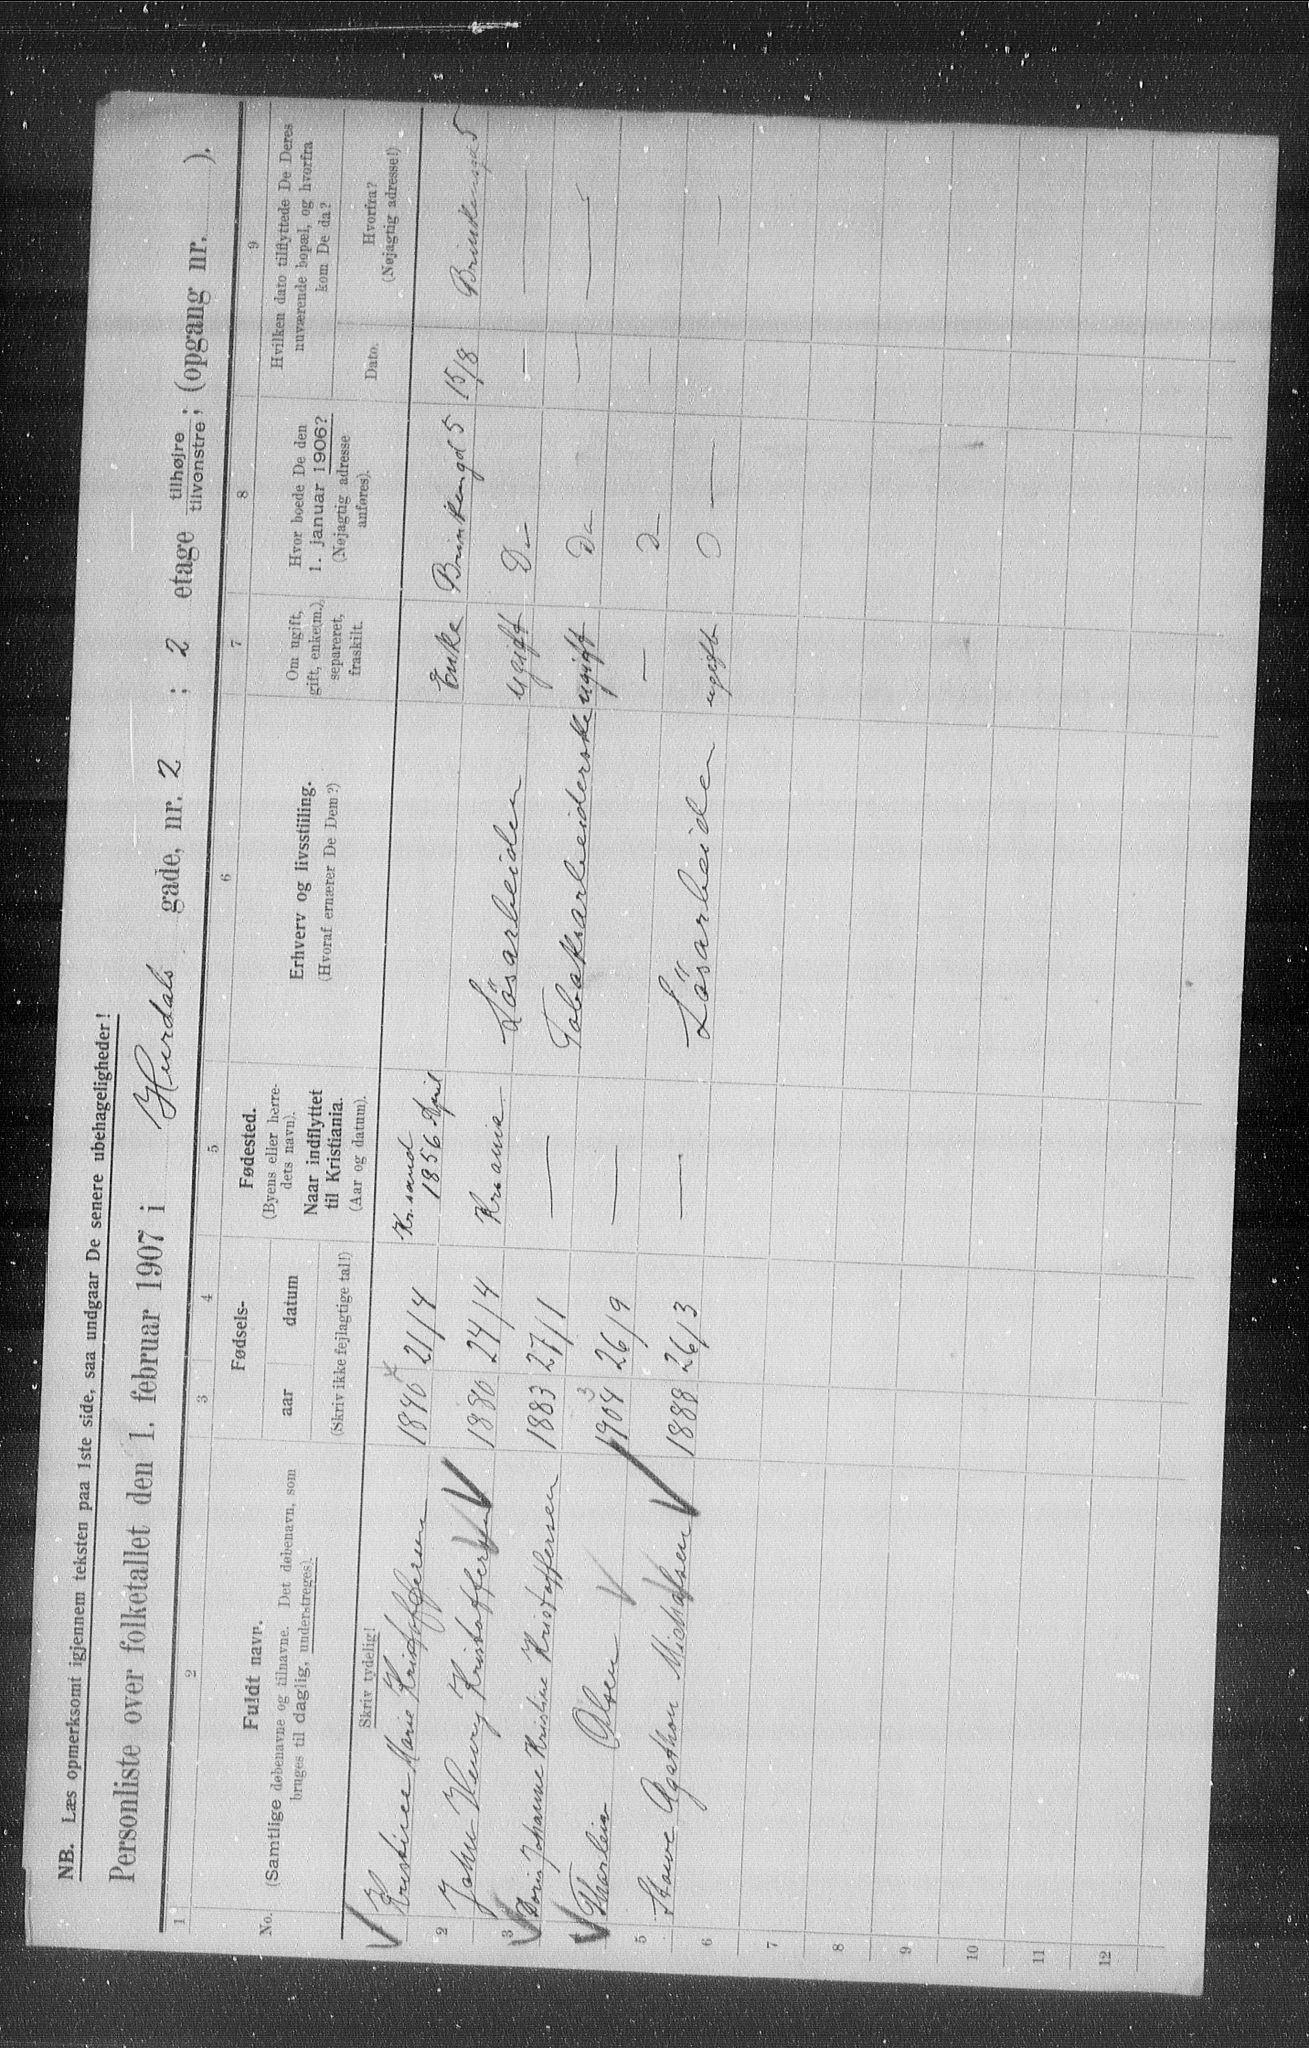 NB. Læs opmerksomt igjennem teksten paa 1ste side, saa undgaar De senere ubehageligheder!
Personliste over folketallet den 1. februar 1907 i Hurdals gade, nr. 2 ; 2 etage tilhøjre tilvenstre; (opgang nr. ).
1 2 3 4 5 6 7 8 9
No.
Fuldt navn.
(Samtlige døbenavne og tilnavne. Det døbenavn, som
bruges til daglig, understreges).
Fødsels-
aar datum
(Skriv ikke fejlagtige tal!)
Fødested.
(Byens eller herre-
dets navn).
Naar indflyttet
til Kristiania.
(Aar og datum).
Erhverv og livsstilling.
(Hvoraf ernærer De Dem?)
Om ugift,
gift, enke(m.),
separeret,
fraskilt.
Hvor boede De den
1. januar 1906?
(Nøjagtig adresse
anføres).
Hvilken dato tilflyttede De Deres
nuværende bopæl, og hvorfra
kom De da?
Dato. Hvorfra?
(Nøjagtig adresse!)
Skriv tydelig!
1 Kristine Marie Kristoffersen 1840 21/4 Kr.sand 1856 April Enke Brinkengd 5 15/8 5
2 John Henry Kristoffersen 1880 24/4 Krania Lösarbeider ugift Do — —
3 Johanne Kristine Kristoffersen 1883 27/1 — Tobaksarbeiderske ugift Do — —
Thorleiv Olsen 1904 3 26/9 — — Do —
5 Agathon Michalsen 1888 26/3 — Lösarbeider ugift — —
6
7
8
9
10
11
12